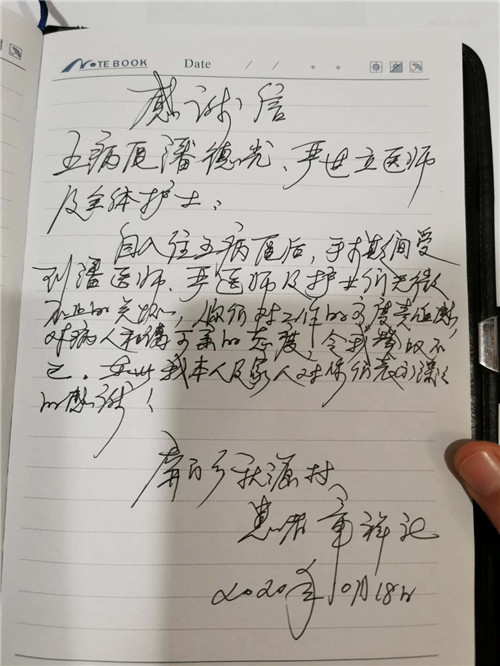 NOTE BOOK Date / /
感谢信
五病区潘德光、严世立医师
及全体护士：
自入住五病区后，手术期间受
到潘医师、严医师及护士们无微
不至的关心，你们对工作的高度责任感，
对病人和蔼可亲的态度，令我感激不
已。在此我本人及家人对你们表示深深
的感谢！
村
患者 章祥
2020年10月18日